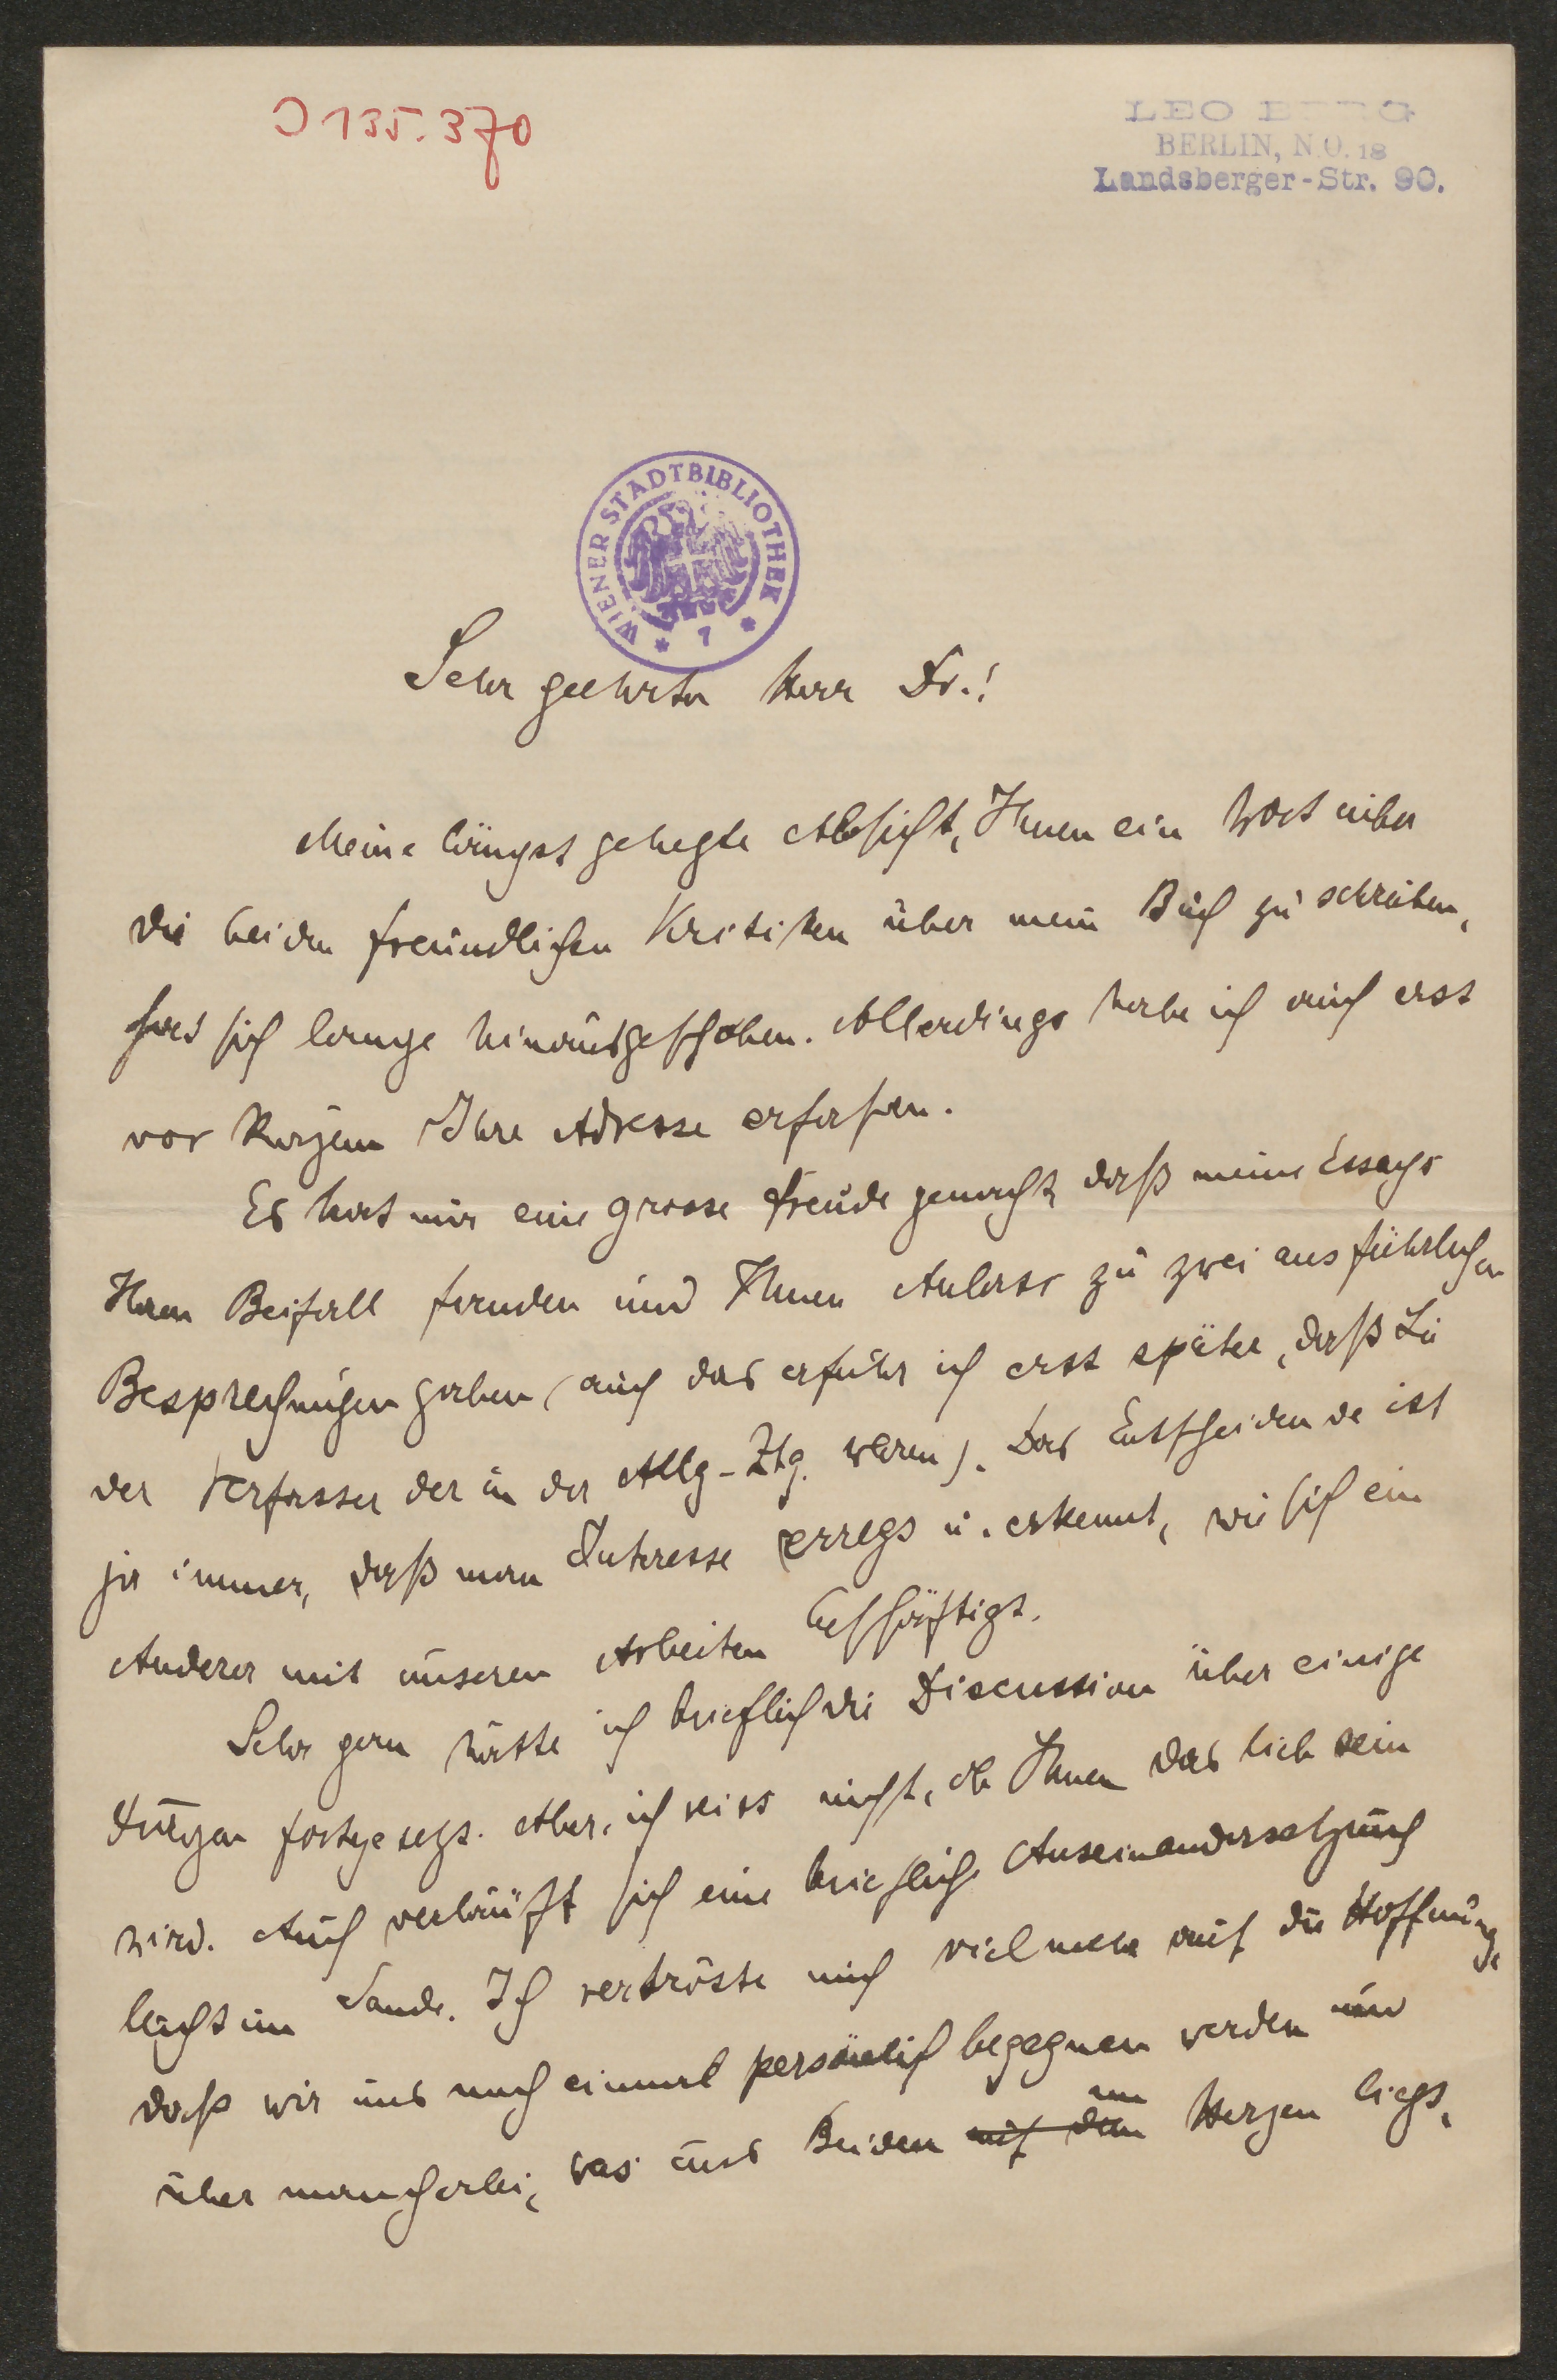 J 135.370
LEO BERG
BERLIN, N.O. 18
Landsberger-Str. 90.
WIENER STADTBIBLIOTHEK
* 7 *
Sehr geehrter Herr Dr.!
Meine längst gehegte Absicht, Ihnen ein Wort über
die beiden freundlichen Kritiken über mein Buch zu schreiben,
hat sich lange hinausgeschoben. Allerdings habe ich auch erst
vor Kurzem Ihre Adresse erfahren.
Es hat mir eine grosse Freude gemacht, daß meine Essays
Ihren Beifall fanden und Ihnen Anlass zu zwei ausführlichen
Besprechungen gaben (auch das erfuhr ich erst später, daß Sie
der Verfasser der in der Allg-Ztg. waren). Das Entscheidende ist
ja immer, daß man Interesse erregt u. erkennt, wie sich ein
Anderer mit unseren Arbeiten beschäftigt.
Sehr gern hätte ich brieflich die Discussion über einige
fortgesetzt. Aber, ich weiss nicht, ob Ihnen das lieb sein
wird. Auch verläuft sich eine briefliche Auseinandersetzung
leicht im Sande. Ich vertröste mich vielmehr auf die Hoffnung,
daß wir uns noch einmal persönlich begegnen werden und
über mancherlei, was uns Beiden auf dem am Herzen liegt,